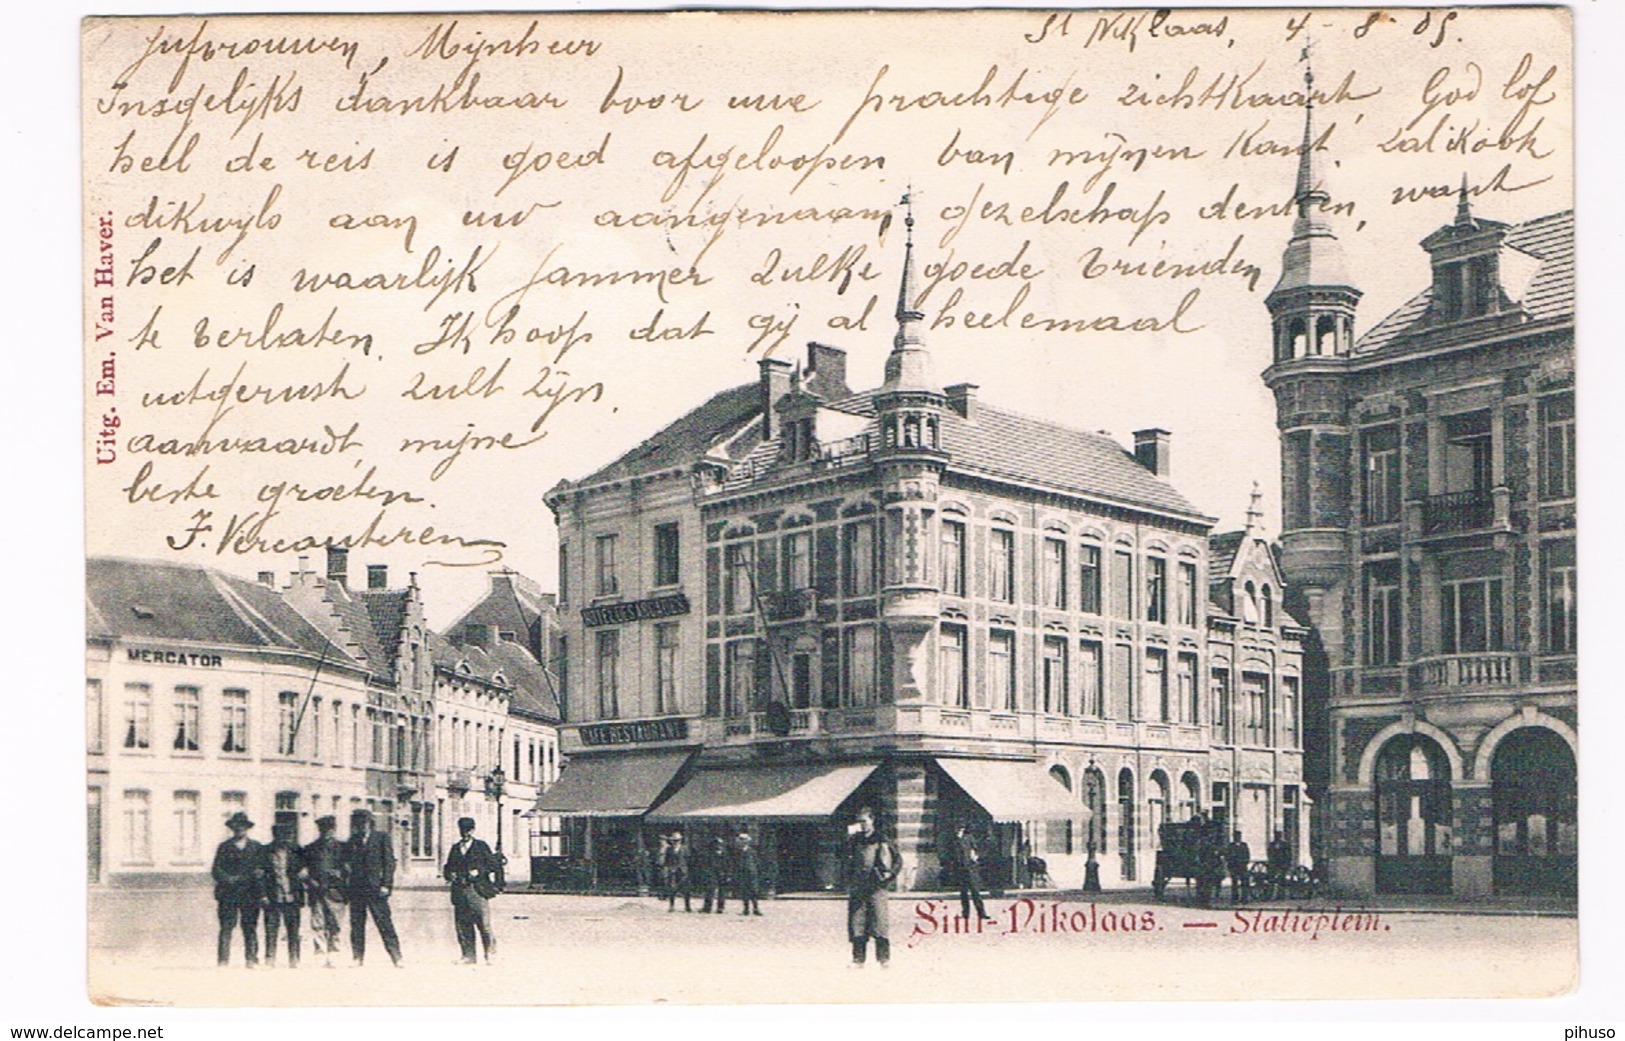 St Niklaas, 4-8-05.
Jufvrouwen, Mijnheer
Insgelijks dankbaar voor uwe prachtige zichtkaart, God lof
heel de reis is goed afgeloopen van mijnen kant. Zal ik ook
dikwijls aan uw aangenaam gezelschap denken, want
het is waarlijk jammer zulke goede vrienden
te verlaten. Ik hoop dat gij al heelemaal
uitgerust zult zijn.
aanvaardt, mijne
beste groeten.
J. Vercauteren
Uitg. Em. Van Haver.
MERCATOR
HOTEL DES ARCADES
CAFE RESTAURANT
Sint-Nikolaas. — Statieplein.
www.delcampe.net
pihuso